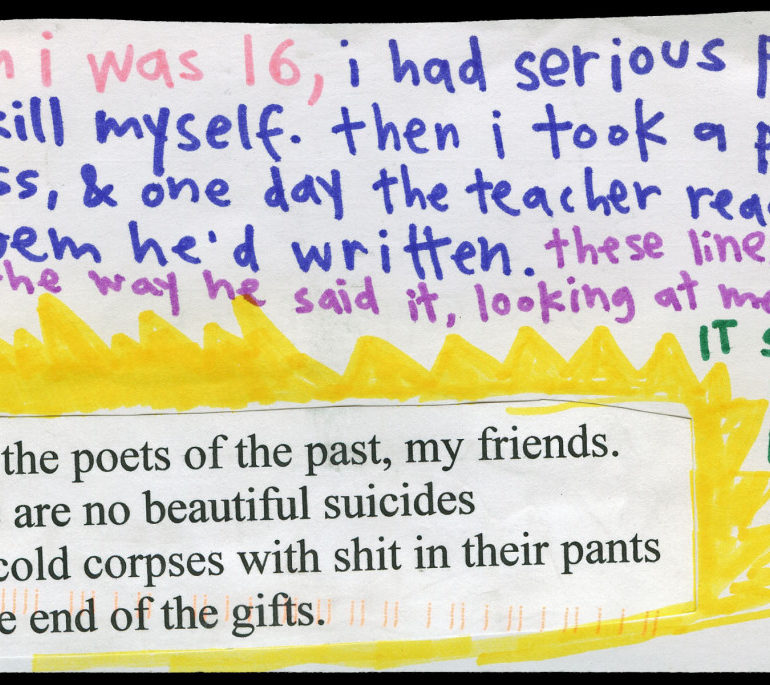 i was 16, i had serious
kill myself. then i took a
ss, & one day the teacher
he'd written. these
the way he said it, looking at me
IT
the poets of the past, my friends.
are no beautiful suicides
cold corpses with shit in their pants
end of the gifts.